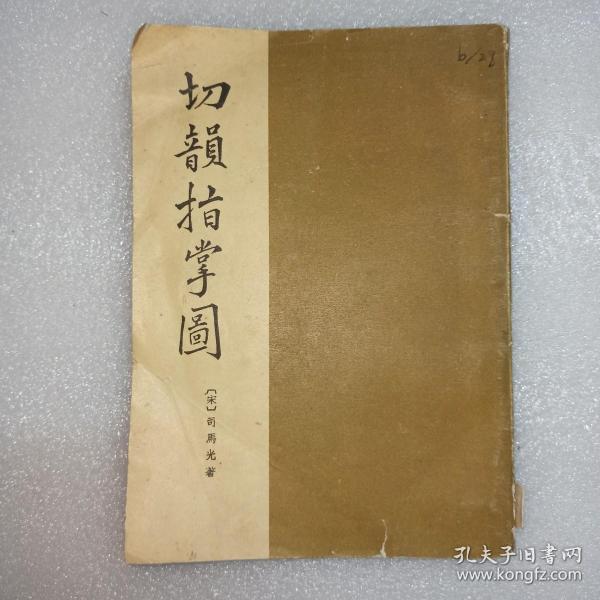 切韻指掌圖
〔宋〕司馬光著
b/28
孔夫子旧书网
www.kongfz.com